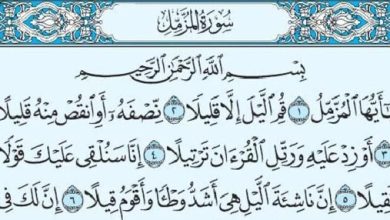 سُورَةُ المُزَّمِّلِ
بِسْمِ اللَّهِ الرَّحْمَٰنِ الرَّحِيمِ
يَٰٓأَيُّهَا الْمُزَّمِّلُ ١ قُمِ الَّيْلَ إِلَّا قَلِيلًا ٢ نِّصْفَهُۥٓ أَوِ انقُصْ مِنْهُ قَلِيلًا
٣ أَوْ زِدْ عَلَيْهِ وَرَتِّلِ الْقُرْءَانَ تَرْتِيلًا ٤ إِنَّا سَنُلْقِى عَلَيْكَ قَوْلًا
٥ إِنَّ نَاشِئَةَ الَّيْلِ هِىَ أَشَدُّ وَطْـًٔا وَأَقْوَمُ قِيلًا ٦ إِنَّ لَكَ فِى